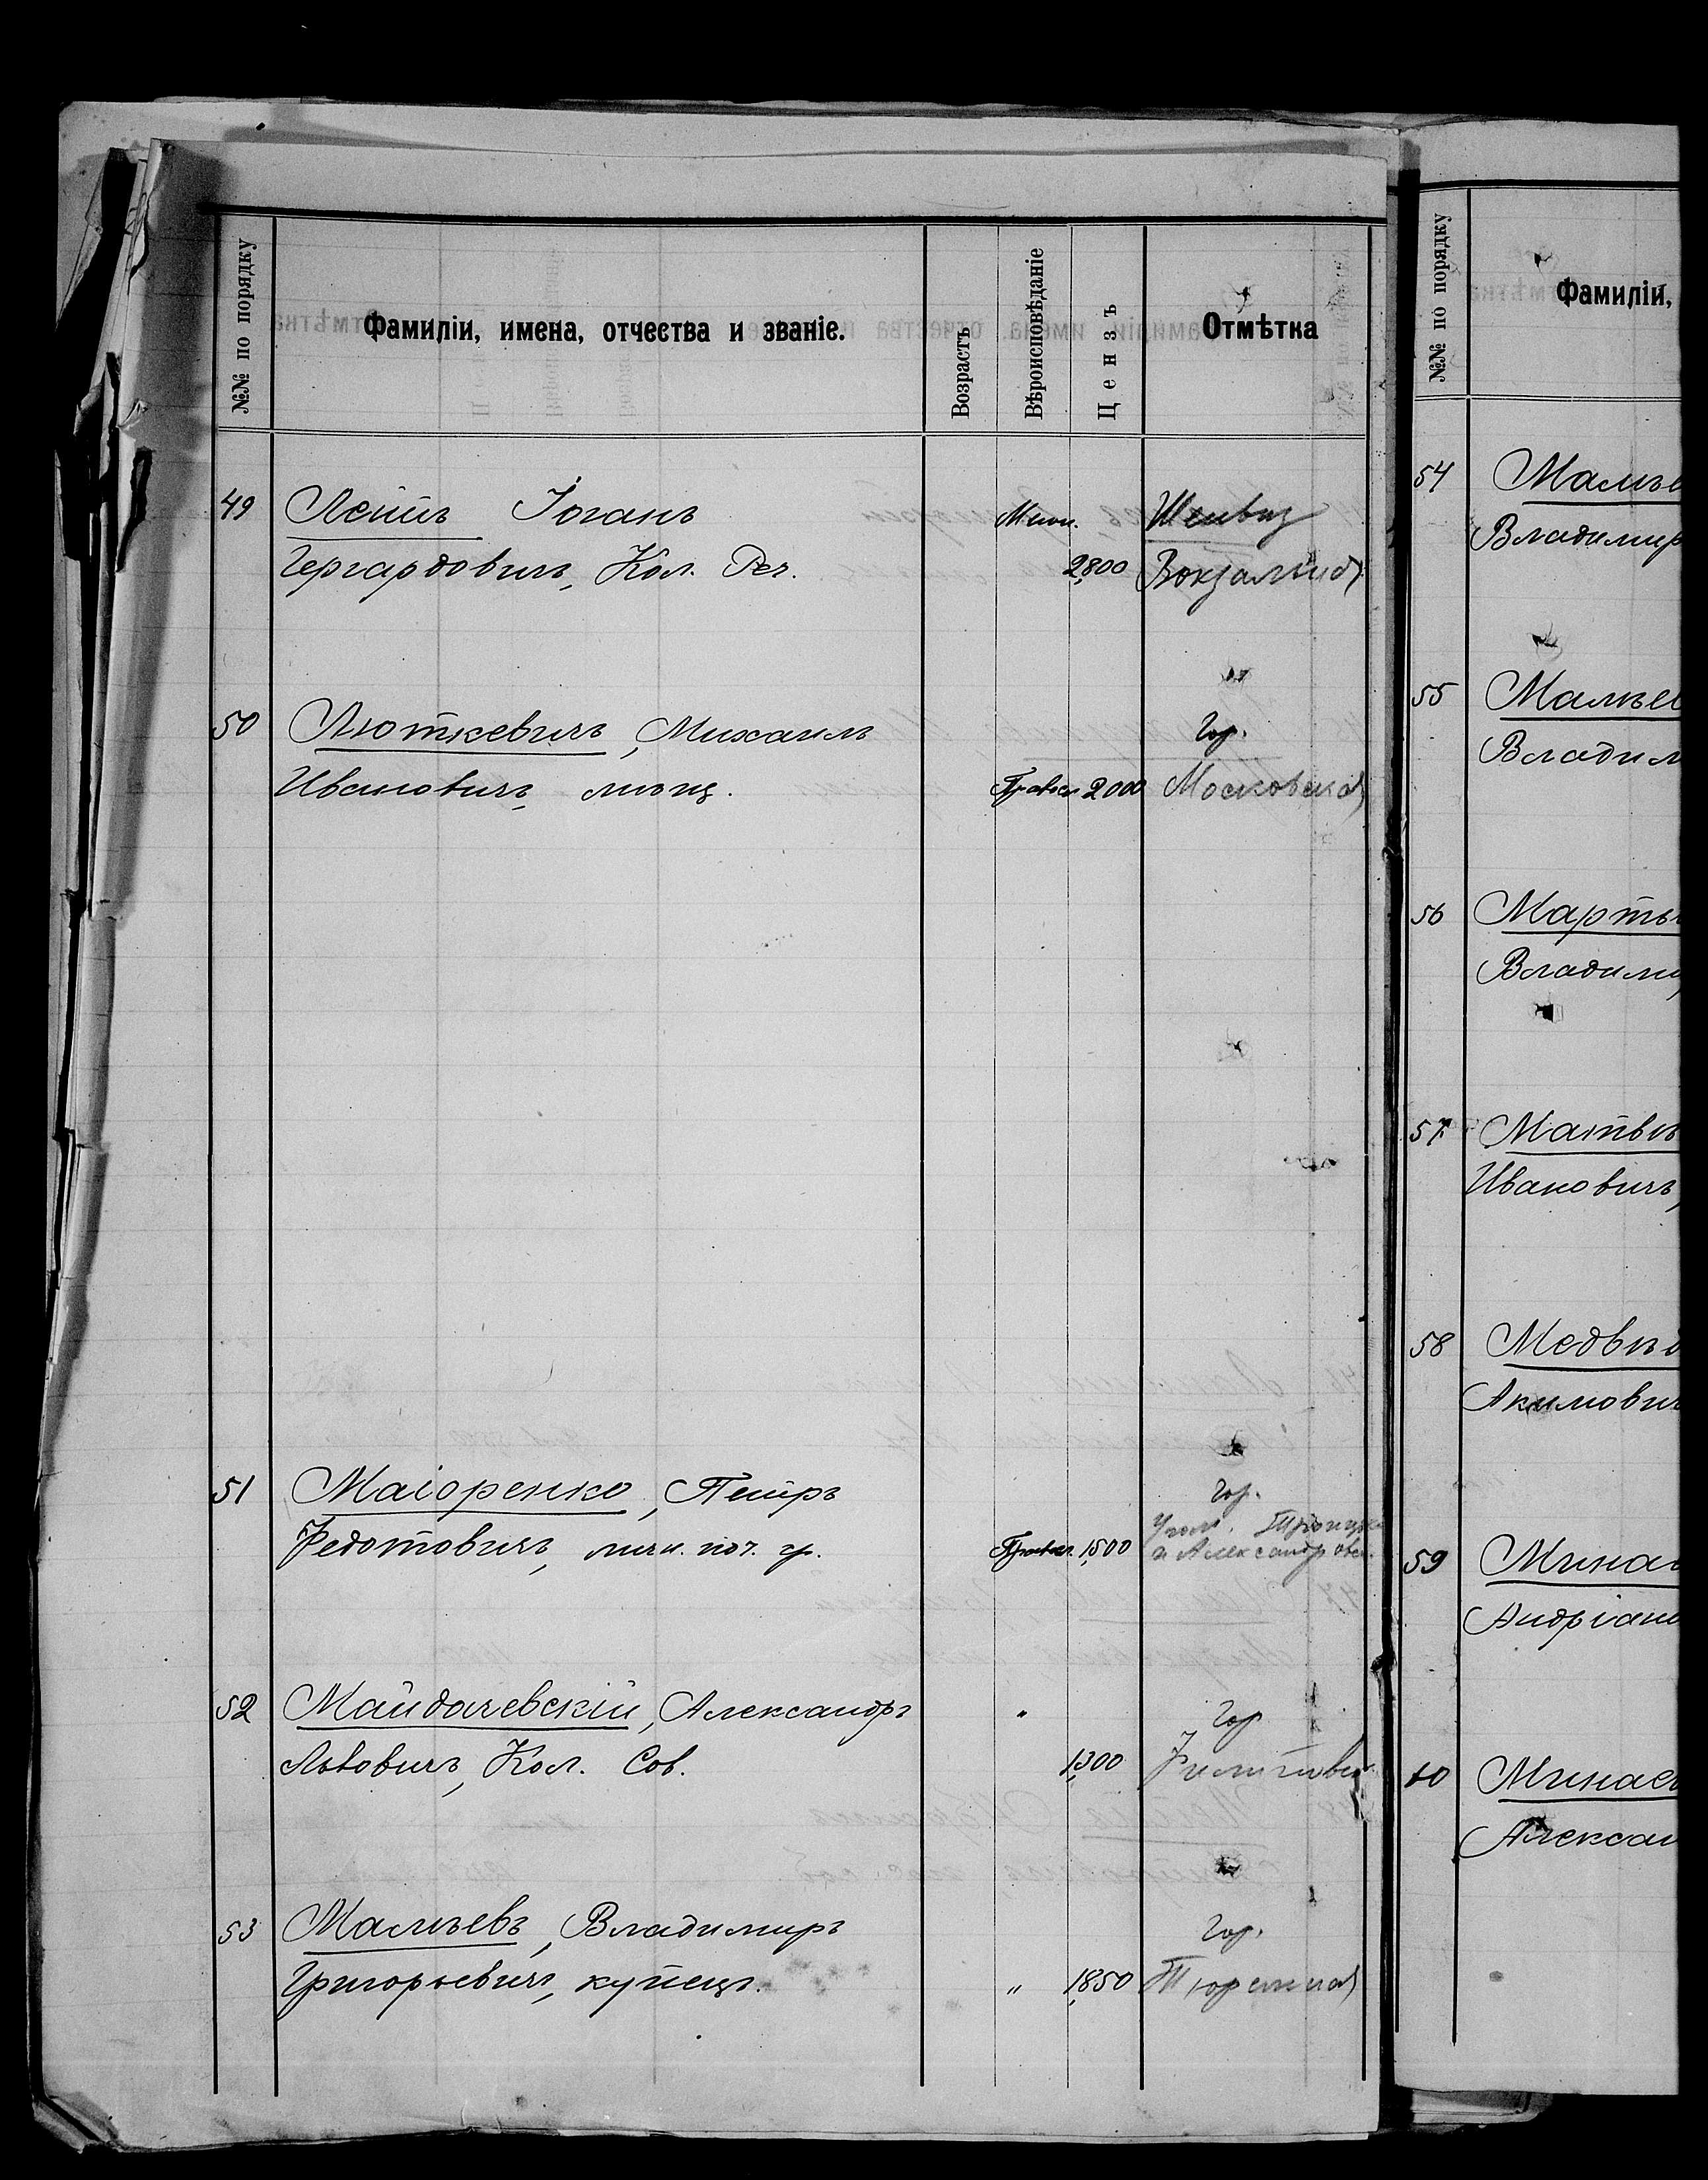 №№ по порядку
Фамиліи, имена, отчества и званіе.
Возрастъ
Вѣроисповѣданіе
Цензъ
Отмѣтка
49 Іоганъ
Гергардовичъ, Кол. Рег. 2800
50 Люткевичъ, Михаилъ Гор.
Ивановичъ, мѣщ. Правосл 2000 Московская
51 Маіоренко, Петръ Гор.
Федотовичъ, личн. поч. гр. Правосл. 1500 и Александровск.
52 Майдачевскій, Александръ " Гор
Львовичъ, Кол. Сов. 1300
53 Малѣевъ, Владимиръ Гор.
Григорьевичъ, купецъ. " 1850 Тюремная
№№ по порядку
Фамиліи,
54 Малѣе
Владимир
55 Малѣе
Владим
56 Марты
Владими
57 Матвѣ
Ивановичъ,
58 Медвѣд
Акимович
59 Минае
Андріано
60 Минае
Алексан